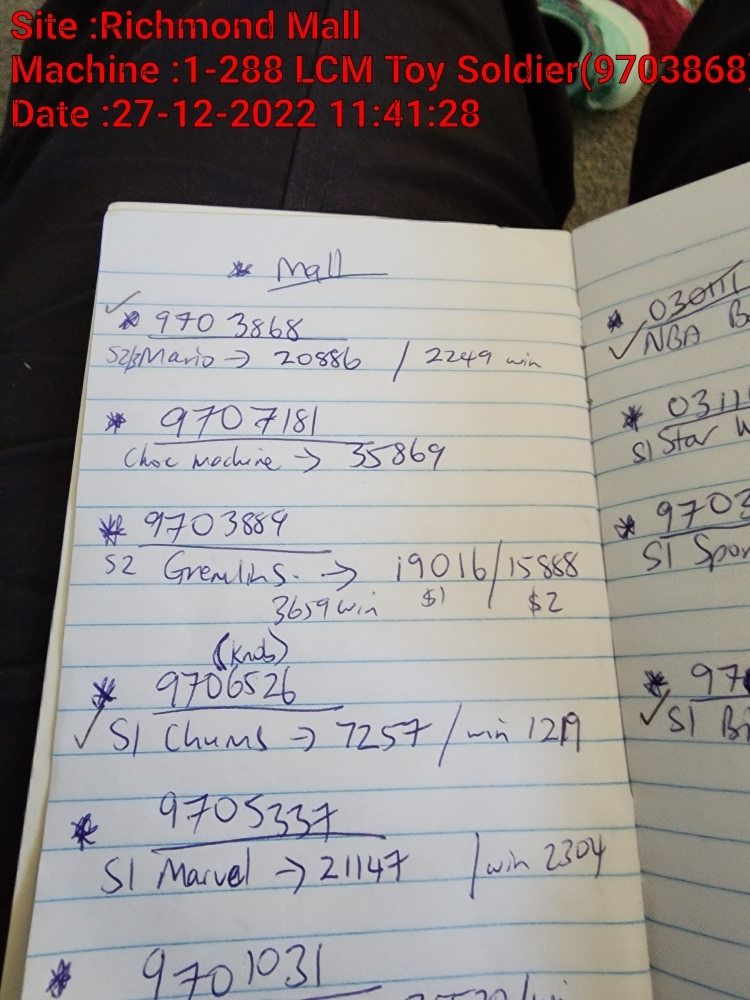 Site :Richmond Mall
Machine :1-288 LCM Toy Soldier(9703868)
Date :27-12-2022 11:41:28
* Mall
* 9703868
Mario → 20886 / 2249 win
* 9707181
Choc machine → 35869
* 9703889
S2 Gremlins. → 19016/15888
3659 win $1 $2
(Knob)
* 9706526
S1 Chums → 7257 / win
* 9705337
S1 Marvel → 21147 / win 2304
* 9701031
* 030111
NBA
* 0311
S1 Star
* 9703
S1
* 97
S1